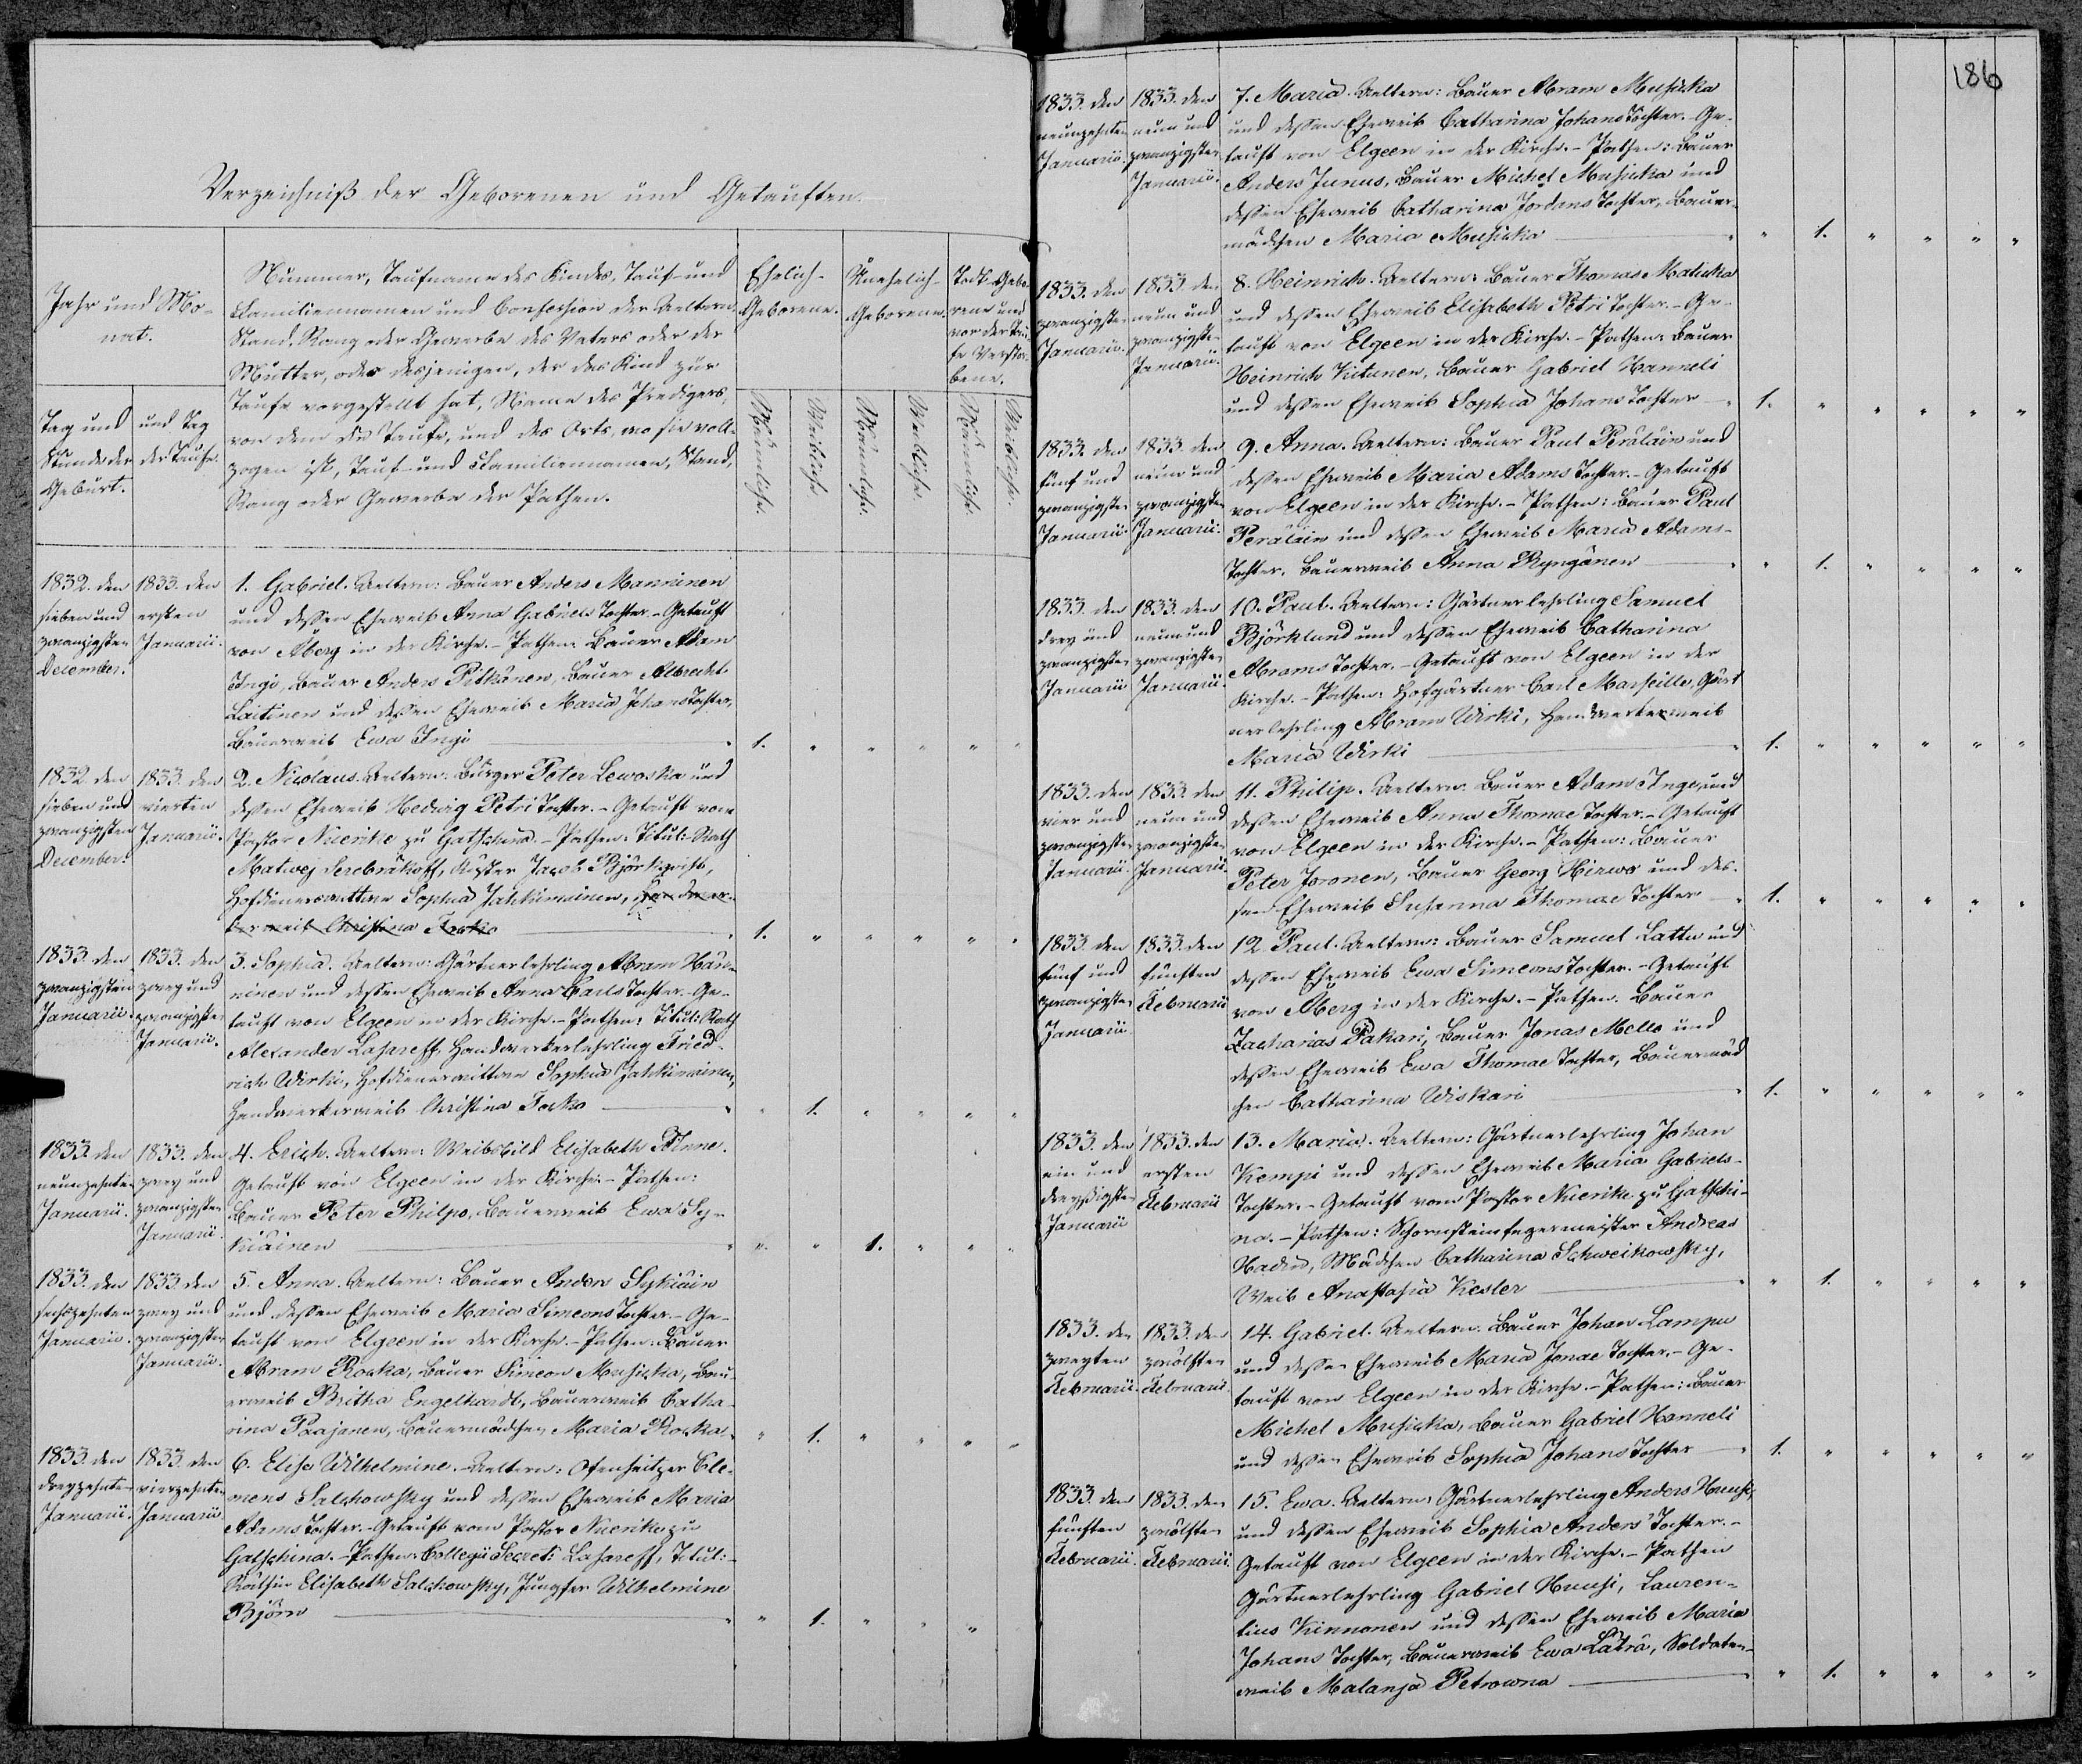 Verzeichniß der Geborenen und Getauften.
Jahr und Mo-
nat.
Tag und
Stunde der
Geburt.
und Tag
der Taufe.
Nummer, Taufname des Kindes, Tauf- und
Familiennamen und Confession der Aeltern,
Stand, Rang oder Gewerbe des Vaters oder der
Mutter, oder desjenigen, der das Kind zur
Taufe vorgestellt hat, Name des Predigers,
von dem die Taufe, und des Orts, wo sie voll-
zogen ist, Tauf- und Familiennamen, Stand,
Rang oder Gewerbe der Pathen.
Ehelich-
Geborene.
Unehelich-
Geborene.
Todt-Gebo-
rene und
vor der Tau-
fe Verstor-
bene.
Männliche.
Weibliche.
Männliche.
Weibliche.
Männliche.
Weibliche.
1832. den
sieben und
zwanzigsten
December.
1833. den
ersten
Januarii.
1. Gabriel. Aeltern: Bauer Anders Manninen
und dessen Eheweib Anna Gabriels Tochter. - Getauft
von Åberg in der Kirche. - Pathen: Bauer Adam
Ingi, Bauer Anders Pitkänen, Bauer Albrecht
Laitinen und dessen Eheweib Maria Johans Tochter,
Bauerweib Ewa Ingi " 1. " " " " "
1832. den
sieben und
zwanzigsten
December.
1833. den
vierten
Januarii.
2. Nicolaus. Aeltern: Bürger Peter Lewoska und
dessen Eheweib Hedwig Petri Tochter. - Getauft vom
Pastor Nierike zu Gatschina. - Pathen: Titul: Rath
Matwej Serebräkoff, Küster Jacob Björkqvist,
Hofdienerswittwe Sophia Jahkimainen, Handwer-
kerweib Christina Tocka " 1. " " " " "
1833. den
zwanzigsten
Januarii.
1833. den
zwey und
zwanzigsten
Januarii.
3. Sophia. Aeltern: Gärtnerlehrling Abram Hän-
ninen und dessen Eheweib Anna Carls Tochter. - Ge-
tauft von Elgeen in der Kirche. - Pathen: Titul: Rath
Alexander Lasareff, Handwerkerlehrling Fried-
rich Wirki, Hofdienerswittwe Sophia Jahkimainen,
Handwerkerweib Christina Tocka " " 1. " " " "
1833. den
neunzehnten
Januarii.
1833. den
zwey und
zwanzigsten
Januarii.
4. Erich. Aeltern: Weibsbild Elisabeth Finne.
Getauft von Elgeen in der Kirche. - Pathen:
Bauer Peter Philpo, Bauerweib Ewa Sy-
kiäinen " " " 1. " " "
1833. den
sechszehnten
Januarii.
1833. den
zwey und
zwanzigsten
Januarii.
5. Anna. Aeltern: Bauer Anders Sykiäin
und dessen Eheweib Maria Simeons Tochter. - Ge-
tauft von Elgeen in der Kirche. - Pathen: Bauer
Abram Rocka, Bauer Simeon Musicka, Bau-
erweib Britha Engelhardt, Bauerweib Catha-
rina Paajanen, Bauermädchen Maria Rocka. " 1. " " " "
1833. den
dreyzehnten
Januarii.
1833. den
vierzehnten
Januarii
6. Elisa Wilhelmine. Aeltern: Ofenheitzer Cle-
mens Salchowsky und dessen Eheweib Maria
Adams Tochter. - Getauft vom Pastor Nierike zu
Gatschina. - Pathen: Collegii Secret: Lasareff, Titul:-
Räthin Elisabeth Salchowsky, Jungfer Wilhelmine
Björn " " 1. " " "
186
1833. den
neunzehnten
Januarii.
1833. den
neun und
zwanzigsten
Januarii.
7. Maria. Aeltern: Bauer Abram Musicka
und dessen Eheweib Catharina Johans Tochter. - Ge-
tauft von Elgeen in der Kirche. - Pathen: Bauer
Anders Junus, Bauer Michel Musicka und
dessen Eheweib Catharina Jordans Tochter, Bauer-
mädchen Maria Musicka " " 1. " " " "
1833. den
zwanzigsten
Januarii.
1833. den
neun und
zwanzigsten
Januarii.
8. Heinrich. Aeltern: Bauer Thomas Maticka
und dessen Eheweib Elisabeth Petri Tochter. - Ge-
tauft von Elgeen in der Kirche. - Pathen: Bauer
Heinrich Kitunen, Bauer Gabriel Hanneli
und dessen Eheweib Sophia Johans Tochter " 1. " " " " "
1833. den
fünf und
zwanzigsten
Januarii.
1833. den
neun und
zwanzigsten
Januarii.
9. Anna. Aeltern: Bauer Paul Peräläin und
dessen Eheweib Maria Adams Tochter. - Getauft
von Elgeen in der Kirche. - Pathen: Bauer Paul
Peräläin und dessen Eheweib Maria Adams-
Tochter, Bauerweib Anna Ryngänen " " 1. " " " "
1833. den
drey und
zwanzigsten
Januarii
1833. den
neun und
zwanzigsten
Januarii.
10. Paul. Aeltern: Gärtnerlehrling Samuel
Björklund und dessen Eheweib Catharina
Abrams Tochter. - Getauft von Elgeen in der
Kirche. - Pathen: Hofgärtner Carl Marseille, Gärt
nerlehrling Abram Wirki, Handwerkerweib
Maria Wirki " 1. " " " " "
1833. den
vier und
zwanzigsten
Januarii.
1833. den
neun und
zwanzigsten
Januarii.
11. Philip. Aeltern: Bauer Adam Inge und
dessen Eheweib Anna Thomae Tochter. - Getauft
von Elgeen in der Kirche. - Pathen: Bauer
Peter Joronen, Bauer Georg Hirwo und des-
sen Eheweib Susanna Thomae Tochter " 1. " " " " "
1833. den
fünf und
zwanzigsten
Januarii.
1833. den
fünften
Februarii
12. Paul. Aeltern: Bauer Samuel Lattu und
dessen Eheweib Ewa Simeons Tochter. - Getauft
von Åberg in der Kirche. - Pathen: Bauer
Zacharias Pakari, Bauer Jonas Mello und
dessen Eheweib Ewa Thomae Tochter, Bauermäd
chen Catharina Wiskari " 1. " " " " "
1833. den
ein und
dreyßigsten
Januarii
1833. den
ersten
Februarii
13. Maria. Aeltern: Gärtnerlehrling Johan
Kempi und dessen Eheweib Maria Gabriels-
Tochter. - Getauft vom Pastor Nierike zu Gatschi-
na. - Pathen: Schornsteinfegermeister Andreas
Hadin, Mädchen Catharina Schweikowsky,
Weib Anastasia Kesler " " 1. " " " "
1833. den
zweyten
Februarii.
1833. den
zwölften
Februarii.
14. Gabriel. Aeltern: Bauer Johan Lampu
und dessen Eheweib Maria Jonae Tochter. - Ge-
tauft von Elgeen in der Kirche. - Pathen: Bauer
Michel Musicka, Bauer Gabriel Hanneli
und dessen Eheweib Sophia Johans Tochter " 1. " " " " "
1833. den
fünften
Februarii.
1833. den
zwölften
Februarii.
15. Ewa. Aeltern: Gärtnerlehrling Anders Huusi,
und dessen Eheweib Sophia Anders Tochter. -
Getauft von Elgeen in der Kirche. - Pathen
Gärtnerlehrling Gabriel Huusi, Lauren-
tius Kinnonen und dessen Eheweib Maria
Johans Tochter, Bauerweib Ewa Läträ, Soldaten-
weib Malanja Petrowna " " 1. " " " "